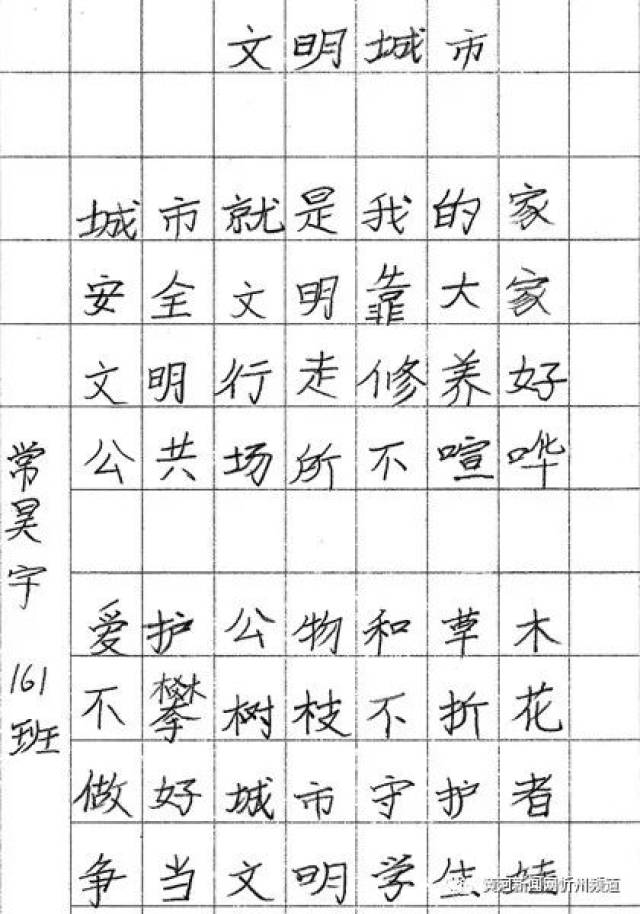 文明城市
城市就是我的家
安全文明靠大家
文明行走修养好
公共场所不喧哗
爱护公物和草木
不攀树枝不折花
做好城市守护者
争当文明学生娃
常昊宇 161班
黄河新闻网忻州频道